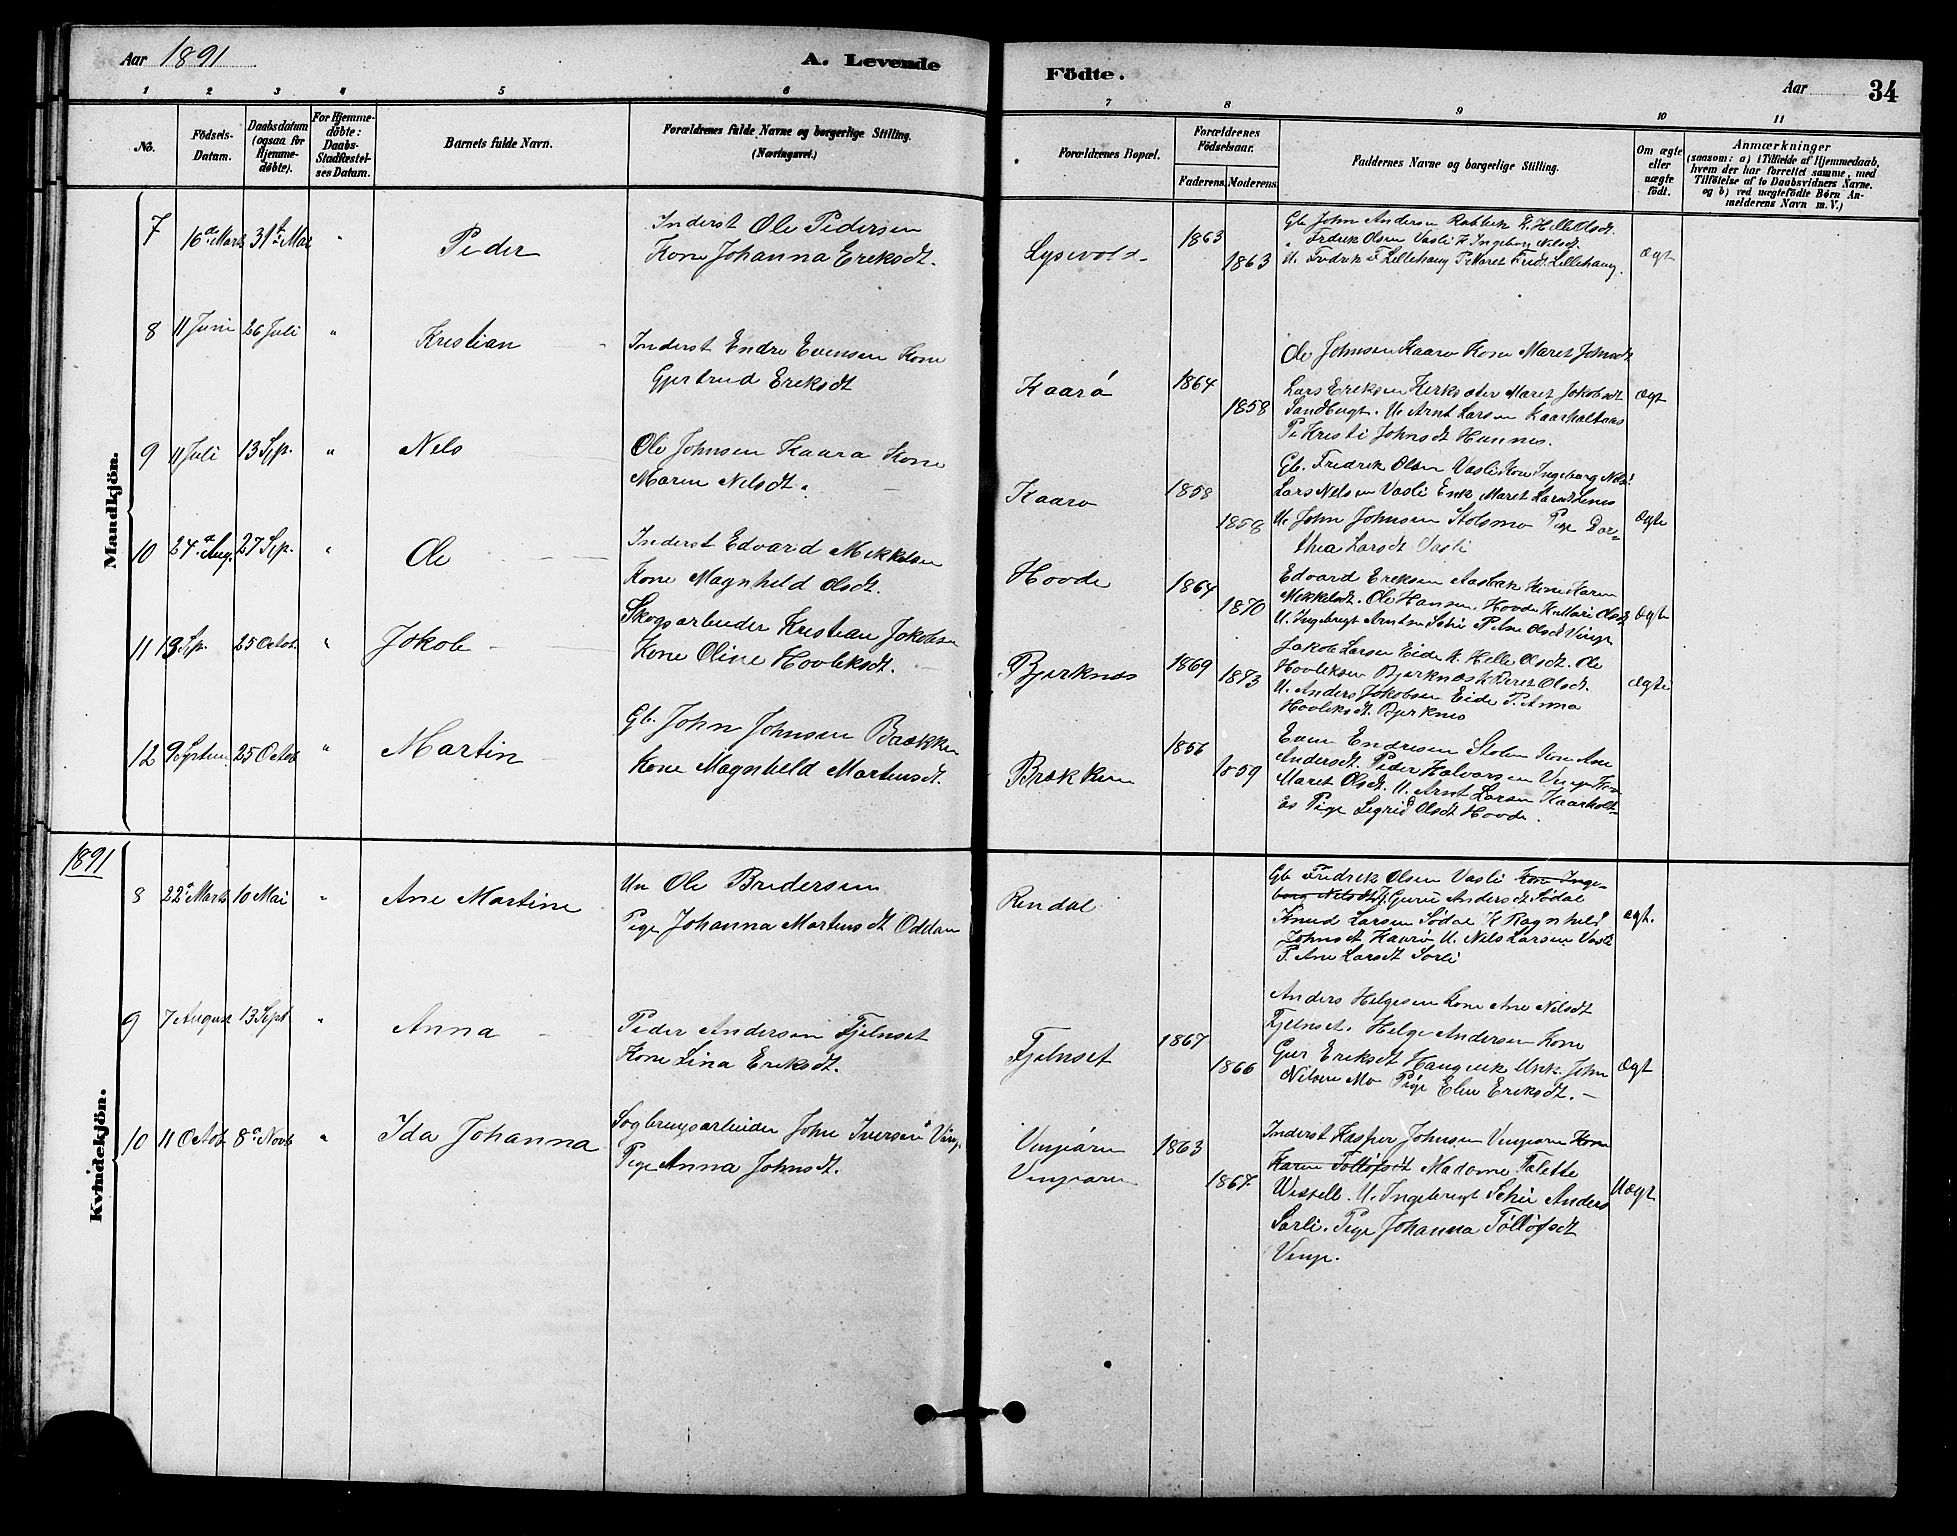 Aar 1891
A. Levende
Födte.
Aar
34
1 2 3 4 5 6 7 8 9 10 11
No.
Födsels-Datum.
Daabsdatum (ogsaa for Hjemme-döbte).
For Hjemme-döbte: Daabs-Stadfæstel-ses Datum.
Barnets fulde Navn.
Forældrenes fulde Navne og borgerlige Stilling.
(Næringsvei.)
Forældrenes Bopæl.
Forældrenes Födselsaar.
Faderens. Moderens.
Faddernes Navne og borgerlige Stilling.
Om ægte eller uægte födt.
Anmærkninger
(saasom: a) i Tilfælde af Hjemmedaab,
hvem der har forrettet samme, med
Tilföielse af to Daabsvidners Navne,
og b) ved uægtefödte Börn An-
melderens Navn m. V.)
Mandkjön.
7 16de Marts 31te Mai " Peder
Inderst Ole Pedersen
Kone Johanna Eriksdt.
Lysvold 1863 1863
Gb. John Andersen Rabbek K. Helle Olsdt.
" Fredrik Olsen Vasli K. Ingeborg Nilsdt.
U. Fredrik F. Lillehaug P. Maret Fred. Lillehaug.
Ægt
8 11 Juni 26 Juli " Kristian
Inderst Endre Evensen Kone
Gjertrud Eriksdt
Kaarö 1864 1858
Ole Johnsen Kaarö Kone Maret Johnsdt
Lars Eriksen Kirksæter Maret Jakobsdt
Sandbugt. U. Arnt Larsen Kaarholtaas
Pi Kristi Johnsdt Hannes.
Ægt
9 11 Juli 13 Sep. " Nels
Ole Johnsen Kaara Kone
Maren Nilsdt.
Kaarö 1858 1858
Gb. Fredrik Olsen Vasli Kone Ingeborg Nilsd.
Lars Nelsen Vasli Enk Maret Larsdt Lenes
U. John Johnsen Stolsmo Pige Dor-
thea Larsdt Vasli
Ægte
10 24de Aug. 27 Sep. " Ole
Inderst Edvard Mikkelsen
Kone Magnhild Olsdt.
Hovde 1864 1870
Edvard Eriksen Aasbæk Kone Karen
Mikkelsdt. Ole Hansen Hovde K. Mari Olsdt
U. Ingebregt Arntsen P. Ane Olsdt Vinge
Ægte
11 19 Sp. 25 Octob. " Jokob
Skogsarbeider Kristian Jokobsen
Kone Oline Hovleksdt.
Bjerknæs 1869 1873
Jakob Larsen Eide K. Helle Olsdt. Ole
Hovleksen Bjerknæs K. Beret Olsdt.
U. Anders Jokobsen Eide P. Anna
Hovleksdt. Bjerknes
Ægte
12 9 Septem. 25 Octob " Martin
Gb. John Johnsen Brækken
Kone Magnhild Martensdt.
Brækken 1856 1859
Even Endresen Stolen Kone Ane
Andersdt. Peder Halvorsen Vinge Kone
Maret Olsdt. U. Arnt Larsen Kaarholt-
ås Pige Segrid Olsdt Hovde.
1891
Kvindekjön.
8 22de Marts 10 Mai " Ane Martine
Un Ole Brudersen
Pige Johanna Martensdt Oddan
Rindal
Gb Fredrik Olsen Vasli Kone Inge-
borg Nelsdt J. Guru Andersdt Södal
Knud Larsen Södal K Ragnhild
Johnsdt Kaarö U. Nils Larsen Vasli
P. Ane Larsdt Sorli
Ægt.
9 7 August 13 Sept " Anna
Peder Andersen Fjelnset
Kone Lina Eriksdt.
Fjelnset 1867 1866
Anders Helgesen Kone Ane Nilsdt
Fjelnset. Helge Andersen Kone
Guri Eriksdt Haugvik Unk. John
Nilsen Mo Pige Elen Eriksdt.
Ægt
10 11 Octob 8de Novb " Ida Johanna
Sagbrugsarbeider John Iversen Ving.
Pige Anna Johnsdt.
Vinjeören
Vinjeören
1863 1867
Inderst Kasper Johnsen Vinjeören Kone
Karen Tolløfsdt Madame Talette
Wessell. U. Ingebregt Anders
Sorli. Pige Johanna Tölløfsdt
Vinje.
Uægt